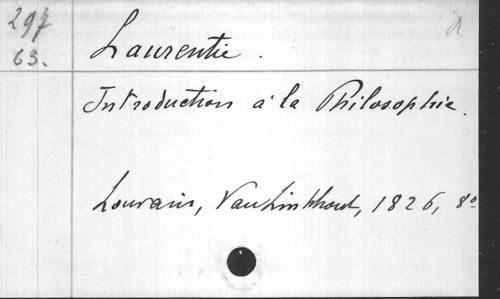 297
63.
Laurentie.
Introduction à la Philosophie.
Louvain, Vanlinthout, 1826, 8º